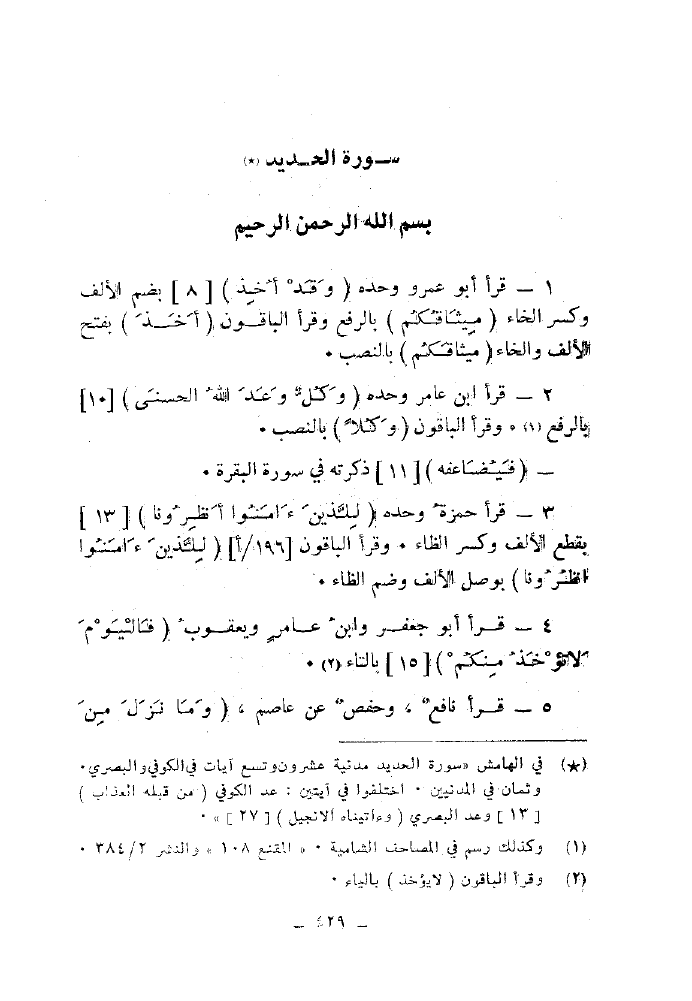 سورة الحديد (★)
بسم الله الرحمن الرحيم
١ ــ قرأ أبو عمرو وحده ( وَقَدْ أُخِذ ) [ ٨ ] بضم الألف
وكسر الخاء ( مِيثَاقُكُم ) بالرفع وقرأ الباقون ( أَخَذَ ) بفتح
الألف والخاء ( ميثاقَكُم ) بالنصب ٠
٢ ــ قرأ ابن عامر وحده ( وَكُلٌ وَعَدَ اللهُ الحسنَى ) [١٠]
بالرفع (١) ٠ وقرأ الباقون ( وَكُلاً ) بالنصب ٠
ــ ( فَيُضَاعفه ) [ ١١ ] ذكرته في سورة البقرة ٠
٣ ــ قرأ حمزةُ وحده ( لِلَّذينَ ءَامَنُوا أَنظِرُونا ) [ ١٣ ]
بقطع الألف وكسر الظاء ٠ وقرأ الباقون [١٩٦/أ] ( لِلَّذينَ ءَامَنُوا
انظُرُونا ) بوصل الألف وضم الظاء ٠
٤ ــ قرأ أبو جعفر وابنُ عامرٍ ويعقوبُ ( فَالْيَوْمَ
لاتُؤْخَذُ مِنكُمْ ) [ ١٥ ] بالتاء (٢) ٠
٥ ــ قرأ نافعٌ ، وحفصٌ عن عاصم ، ( وَمَا نَزَلَ مِنَ
(★) في الهامش «سورة الحديد مدنية عشرون وتسع آيات في الكوفي والبصري ٠
وثمان في المدنيين ٠ اختلفوا في آيتين : عد الكوفي ( من قبله العذاب )
[ ١٣ ] وعد البصري ( وءاتيناه الانجيل ) [ ٢٧ ] » ٠
(١) وكذلك رسم في المصاحف الشامية ٠ « المقنع ١٠٨ » والنشر ٣٨٤/٢ ٠
(٢) وقرأ الباقون ( لايؤخذ ) بالياء ٠
ــ ٤٢٩ ــ